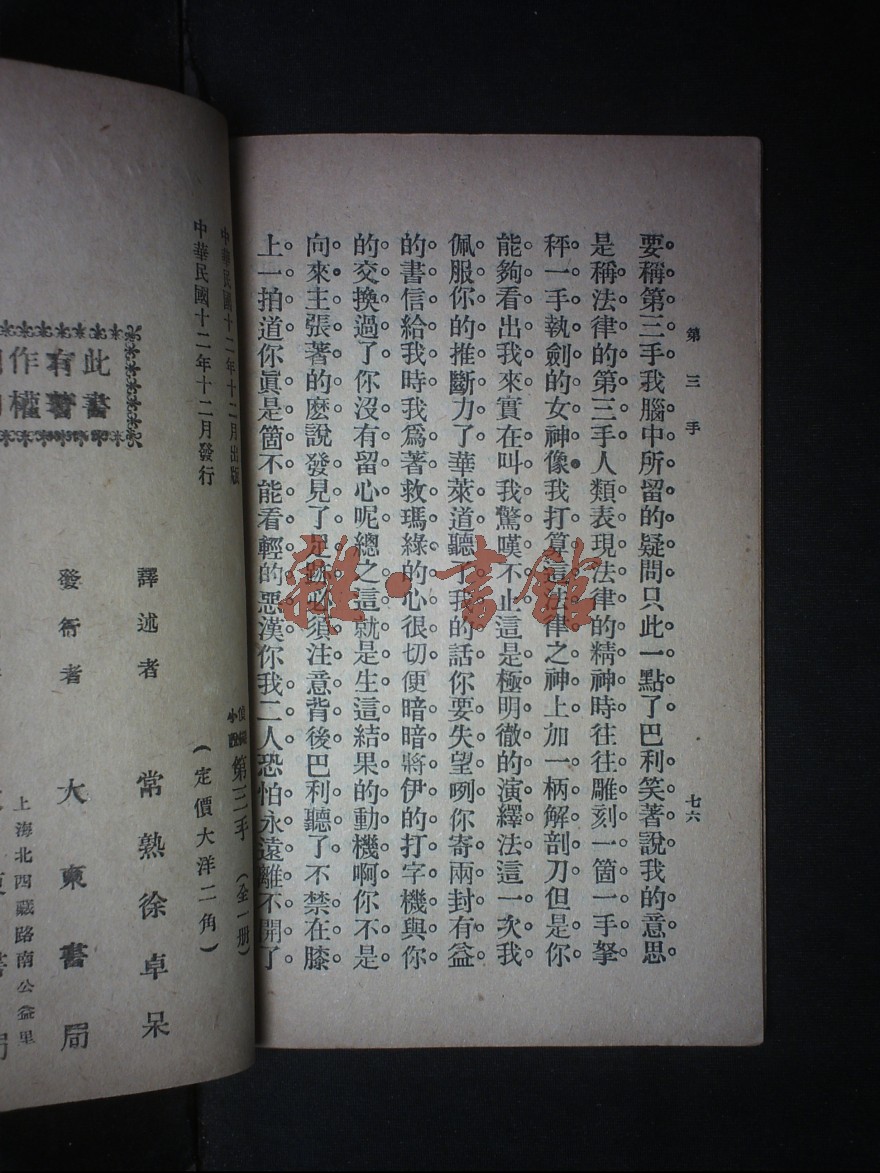 第三手
七六
要稱第三手我腦中所留的疑問只此一點了巴利笑著說我的意思
是稱法律的第三手人類表現法律的精神時往往雕刻一箇一手拏
秤一手執劍的女神像我打算這法律之神上加一柄解剖刀但是你
能夠看出我來實在叫我驚嘆不止這是極明徹的演繹法這一次我
佩服你的推斷力了華萊道聽了我的話你要失望咧你寄兩封有益
的書信給我時我爲著救瑪綠的心很切便暗暗將伊的打字機與你
的交換過了你沒有留心呢總之這就是生這結果的動機啊你不是
向來主張著的麽說發見了足跡必須注意背後巴利聽了不禁在膝
上一拍道你眞是箇不能看輕的惡漢你我二人恐怕永遠離不開了
雜·書館
中華民國十二年十二月出版
中華民國十二年十二月發行
小說 第三手 (全一册)
(定價大洋二角)
此書
有著
作權
譯述者 常熟徐卓呆
發行者 大東書局
上海北西藏路南公益里